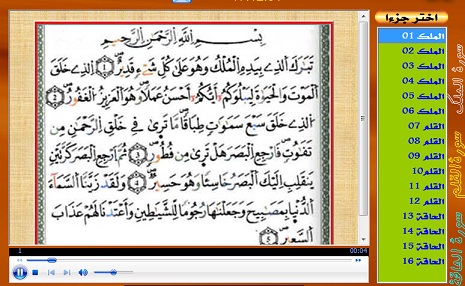 بِسْمِ اللَّهِ الرَّحْمَٰنِ الرَّحِيمِ
تَبَٰرَكَ الَّذِي بِيَدِهِ الْمُلْكُ وَهُوَ عَلَىٰ كُلِّ شَيْءٍ قَدِيرٌ ١ الَّذِي خَلَقَ
الْمَوْتَ وَالْحَيَوٰةَ لِيَبْلُوَكُمْ أَيُّكُمْ أَحْسَنُ عَمَلًا وَهُوَ الْعَزِيزُ الْغَفُورُ ٢
الَّذِي خَلَقَ سَبْعَ سَمَٰوَٰتٍ طِبَاقًا مَّا تَرَىٰ فِي خَلْقِ الرَّحْمَٰنِ مِن
تَفَٰوُتٍ فَارْجِعِ الْبَصَرَ هَلْ تَرَىٰ مِن فُطُورٍ ٣ ثُمَّ ارْجِعِ الْبَصَرَ كَرَّتَيْنِ
يَنقَلِبْ إِلَيْكَ الْبَصَرُ خَاسِئًا وَهُوَ حَسِيرٌ ٤ وَلَقَدْ زَيَّنَّا السَّمَاءَ
الدُّنْيَا بِمَصَٰبِيحَ وَجَعَلْنَٰهَا رُجُومًا لِّلشَّيَٰطِينِ وَأَعْتَدْنَا لَهُمْ عَذَابَ
السَّعِيرِ
1
00:04
اختر جزءا
الملك 01
الملك 02
الملك 03
الملك 04
الملك 05
الملك 06
القلم 07
القلم 08
القلم 09
القلم10
القلم 11
القلم 12
الحاقة 13
الحاقة 14
الحاقة 15
الحاقة 16
سورة الملك
سورة القلم
سورة الحاقة